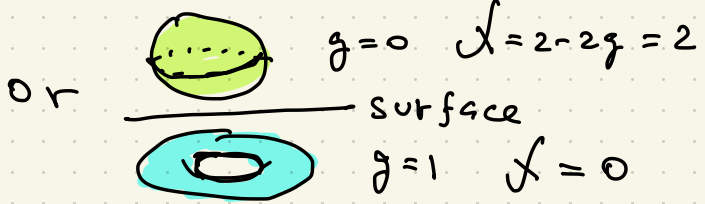 g = 0 χ = 2 - 2g = 2
or surface
g = 1 χ = 0